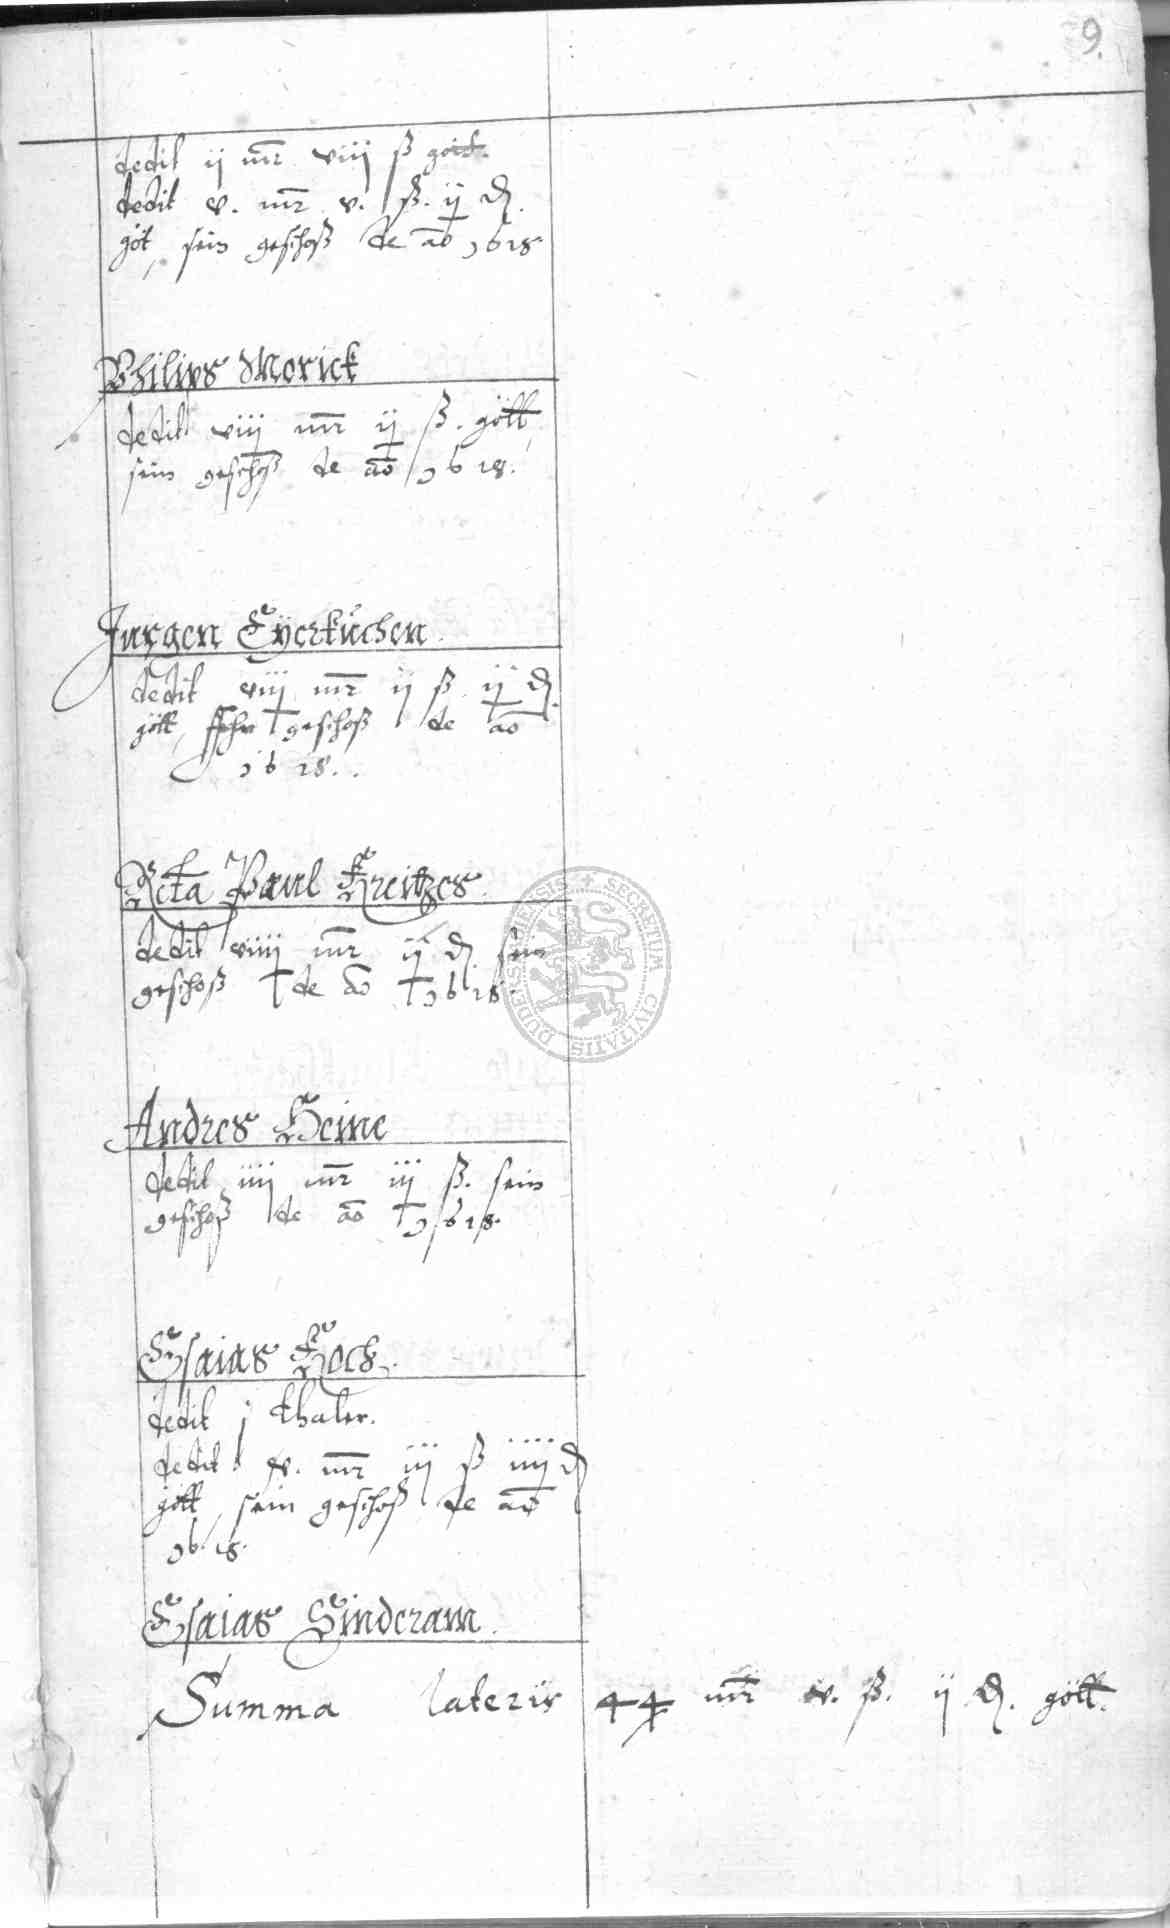 9.
dedit ij mr viij ß gött.
dedit v. mr v. ß. ij ₰.
göt, sein geschoß de ao 1618
Philips Morick
dedit viij mr ij ß. gött,
sein geschoß de ao 1618.
Jurgen Eyerkuchen.
dedit viij mr ij ß ij ₰.
gött, geschoß de ao
1618..
Rcta Paul Kreitzes.
dedit viiij mr ij ₰ sein
geschoß de ao 1618.
Andres Heine
dedit iiij mr iij ß. sein
geschoß de ao 1618.
Esaias Koch.
dedit j thaler.
dedit v. mr iij ß iiij ₰
gött, sein geschoß de ao
1618.
Esaias Sinderam.
Summa lateris 44 mr v. ß. ij ₰. gött.
SECRETUM CIVITATIS DUDERSTADIENSIS